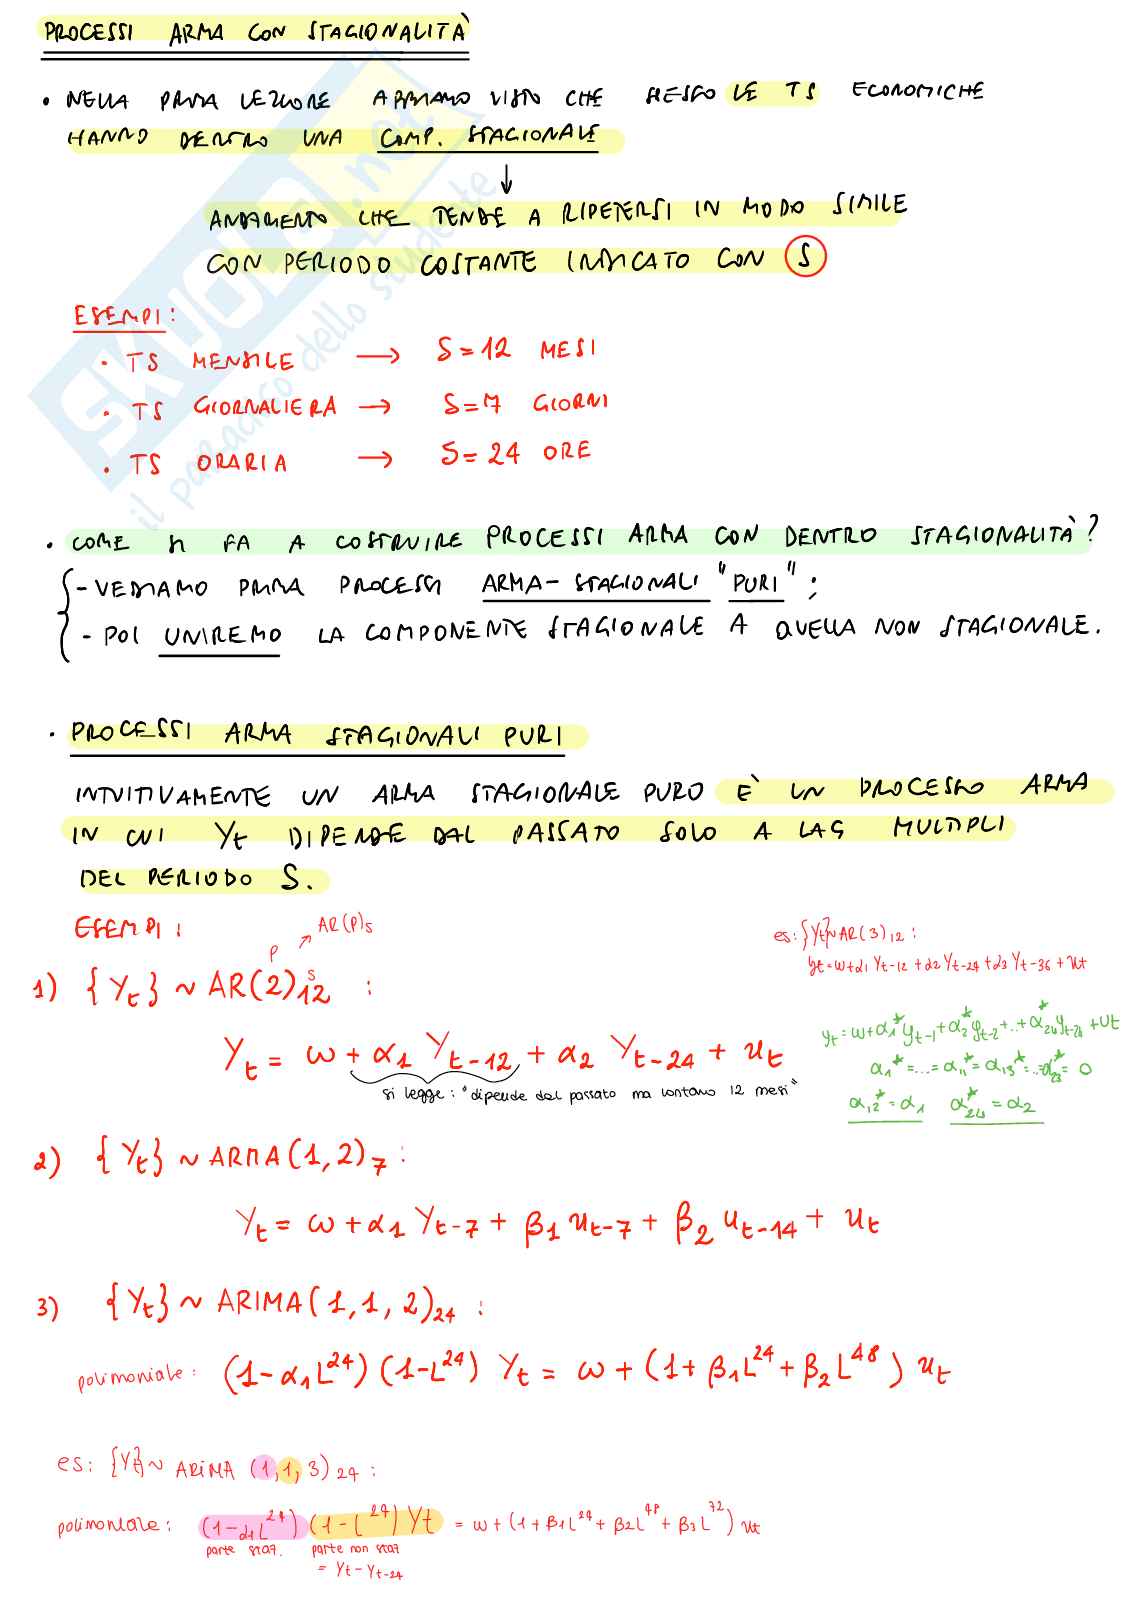 PROCESSI ARMA CON STAGIONALITÀ
• NELLA PRIMA LEZIONE ABBIAMO VISTO CHE SPESSO LE TS ECONOMICHE
HANNO DENTRO UNA COMP. STAGIONALE
↓
ANDAMENTO CHE TENDE A RIPETERSI IN MODO SIMILE
CON PERIODO COSTANTE INDICATO CON S
ESEMPI:
• TS MENSILE → S=12 MESI
• TS GIORNALIERA → S=7 GIORNI
• TS ORARIA → S=24 ORE
SKUOLA.net
il paradiso dello studente
• COME SI FA A COSTRUIRE PROCESSI ARMA CON DENTRO STAGIONALITÀ?
- VEDIAMO PRIMA PROCESSI ARMA-STAGIONALI "PURI";
- POI UNIREMO LA COMPONENTE STAGIONALE A QUELLA NON STAGIONALE.
• PROCESSI ARMA STAGIONALI PURI
INTUITIVAMENTE UN ARMA STAGIONALE PURO È UN PROCESSO ARMA
IN CUI Yt DIPENDE DAL PASSATO SOLO A LAG MULTIPLI
DEL PERIODO S.
ESEMPI:
P → AR(P)s
1) {Yt} ~ AR(2)12 :
S
Yt = ω + α1 Yt-12 + α2 Yt-24 + ut
si legge: "dipende dal passato ma lontano 12 mesi"
es: {Yt} ~ AR(3)12 :
yt = ω + α1 Yt-12 + α2 Yt-24 + α3 Yt-36 + ut
yt = ω + α1* yt-1 + α2* yt-2 + .. + α24* yt-24 + ut
α1* = ... = α11* = α13* = ... α23* = 0
α12* = α1 α24* = α2
2) {Yt} ~ ARMA(1,2)7 :
Yt = ω + α1 Yt-7 + β1 ut-7 + β2 ut-14 + ut
3) {Yt} ~ ARIMA(1,1,2)24 :
polimoniale: (1-α1L^24) (1-L^24) Yt = ω + (1+β1L^24+β2L^48) ut
es: {Yt} ~ ARIMA (1,1,3)24 :
polimoniale: (1-α1L^24) (1-L^24) Yt = ω + (1+β1L^24+β2L^48+β3L^72) ut
parte staz. parte non staz
= Yt - Yt-24